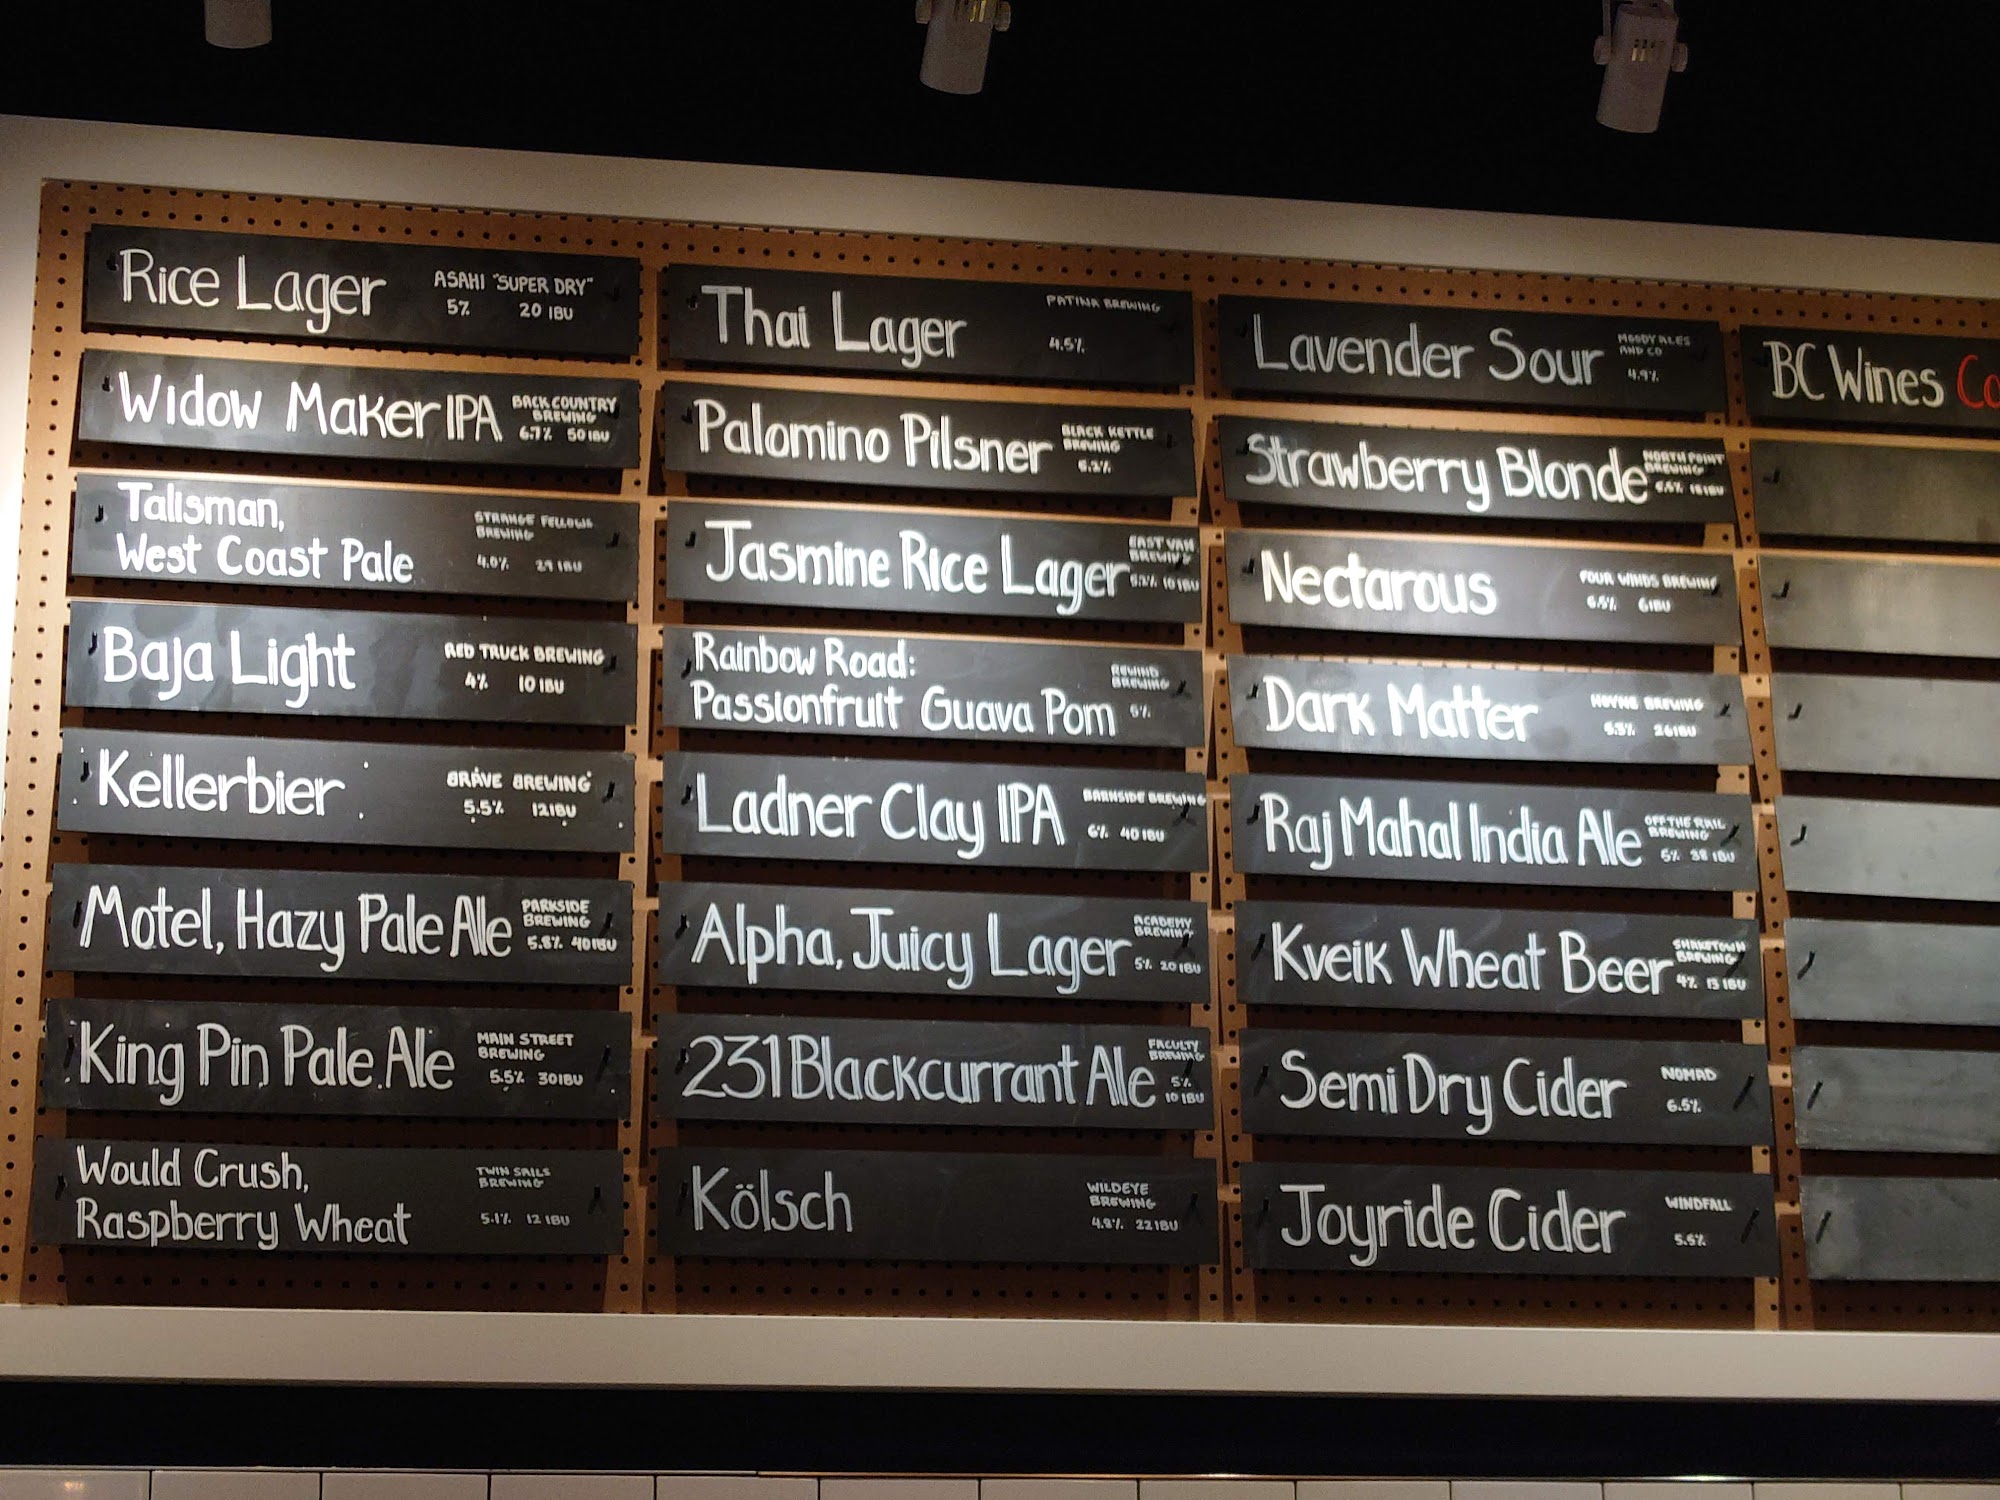 Rice Lager
ASAHI "SUPER DRY"
5% 20 IBU
Widow Maker IPA
BACK COUNTRY
BREWING
6.7% 50 IBU
Talisman,
West Coast Pale
STRANGE FELLOWS
BREWING
4.0% 29 IBU
Baja Light
RED TRUCK BREWING
4% 10 IBU
Kellerbier
BRAVE BREWING
5.5% 12 IBU
Motel, Hazy Pale Ale
PARKSIDE
BREWING
5.8% 40 IBU
King Pin Pale Ale
MAIN STREET
BREWING
5.5% 30 IBU
Would Crush,
Raspberry Wheat
TWIN SAILS
BREWING
5.1% 12 IBU
Thai Lager
PATINA BREWING
4.5%
Palomino Pilsner
BLACK KETTLE
BREWING
Jasmine Rice Lager
EAST VAN
BREWING
10 IBU
Rainbow Road:
Passionfruit Guava Pom
REWIND
BREWING
6%
Ladner Clay IPA
BARNSIDE BREWING
6% 40 IBU
Alpha, Juicy Lager
ACADEMY
BREWING
5% 20 IBU
231 Blackcurrant Ale
FACULTY
BREWING
5%
10 IBU
Kölsch
WILDEYE
BREWING
4.8% 22 IBU
Lavender Sour
MOODY ALES
AND CO
4.9%
Strawberry Blonde
NORTH POINT
BREWING
Nectarous
FOUR WINDS BREWING
6 IBU
Dark Matter
HOYNE BREWING
5.3% 26 IBU
Raj Mahal India Ale
OFF THE RAIL
BREWING
38 IBU
Kveik Wheat Beer
SHAKETOWN
BREWING
4% 15 IBU
Semi Dry Cider
NOMAD
6.5%
Joyride Cider
WINDFALL
5.5%
BC Wines Co